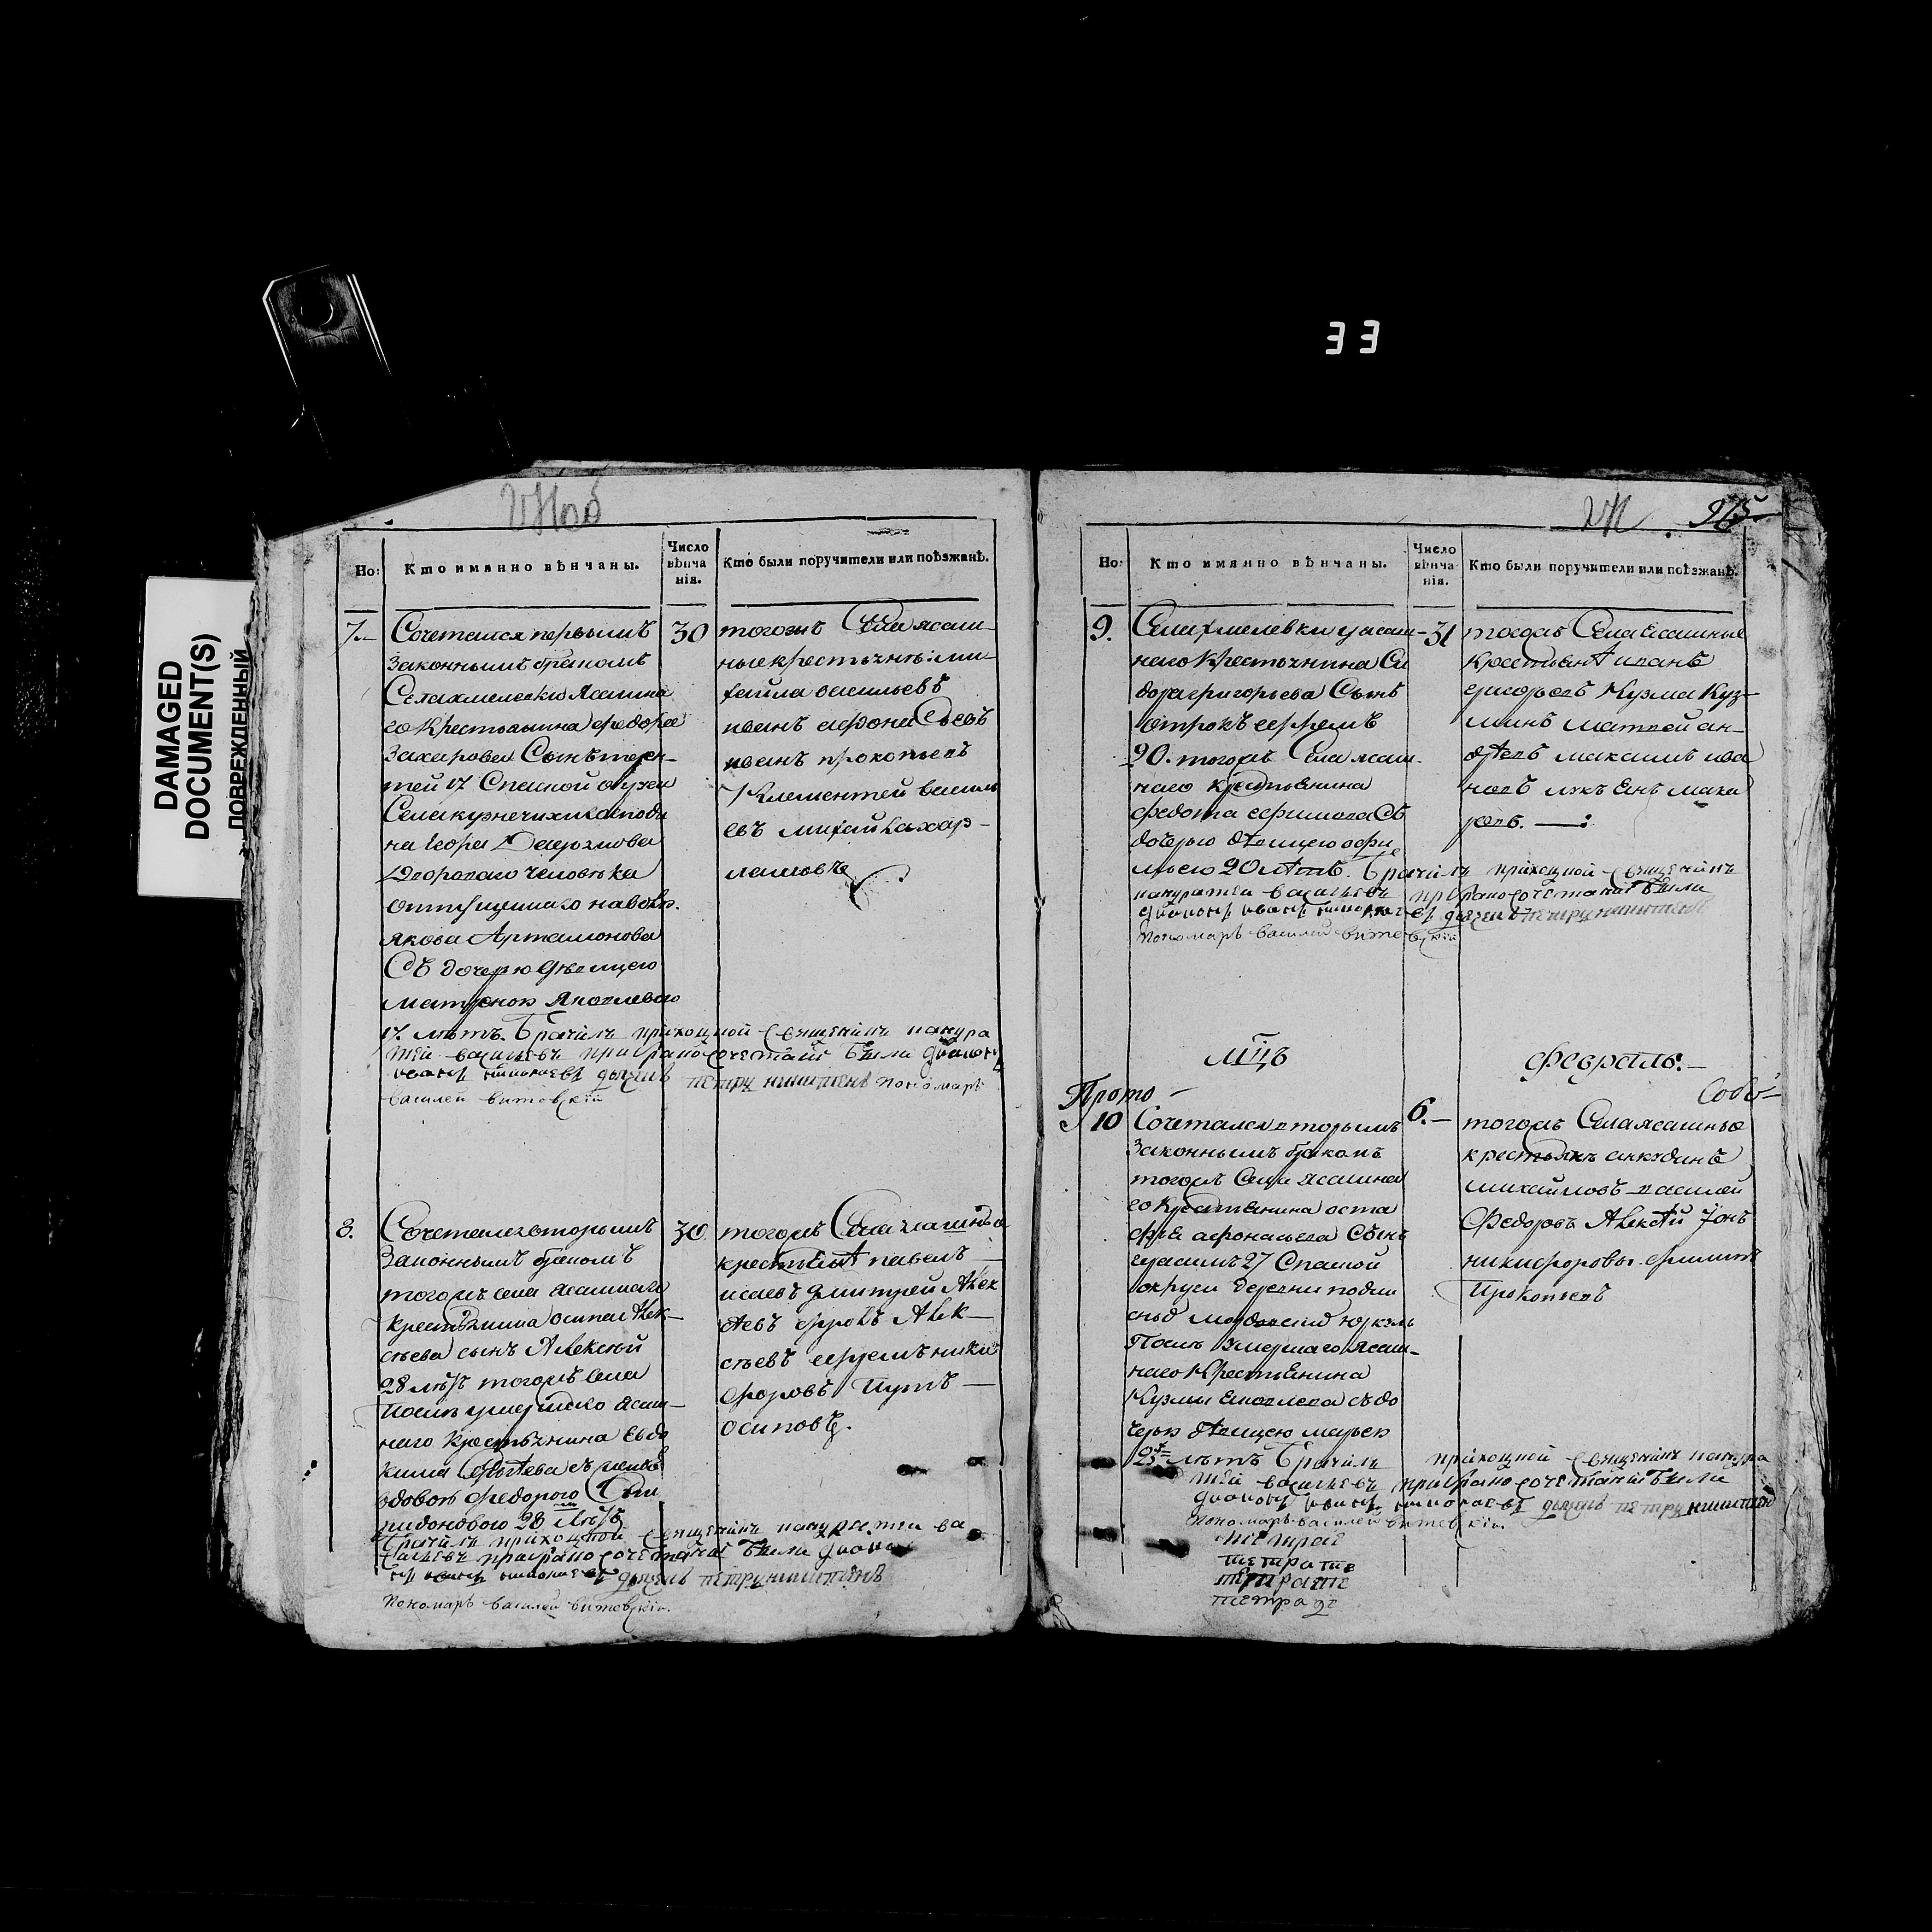 33
DAMAGED
DOCUMENT(S)
ПОВРЕЖДЕННЫЙ
Но:
Кто имянно вѣнчаны.
Число
вѣнча
нія.
Кто были поручители или поѣзжанѣ.
7.
Сочетался первымъ
законнымъ бракомъ
Села хмелевки Ясашна
го Крестьянина федора
Захарова Сынъ терен-
тей 17 Спаской округи
Села кузнечихи Господи
на
Двороваго человѣка
отпущеннаго на волю.
якова Артамонова
Съ дочерью дѣвицею
матроною Яковлевою
17. лѣтъ. Брачилъ приходцкой священникъ панкра
тей васильевъ при брако сочетаніи были диаконъ
иванъ николаевъ дьячекъ петръ никитинъ Пономарь
василей витевскій
30
тогожъ Села ясаш-
ные крестьянѣ: ми-
хайла васильевъ
иванъ афонасьевъ
иванъ прокопьевъ
Климентей василь
евъ михайла хар-
ламовъ
8.
Сочетался вторымъ
Законнымъ бракомъ
тогожъ села Ясашнаго
крестьянина осипа Алек-
сѣева сынъ Алексѣй
28 лѣтъ тогожъ Села
послѣ умершаго ясаш-
наго крестьянина Евдо
кима съ женою
вдовою федорою Спи
ридоновою 28 лѣтъ
Брачилъ приходцкой священникъ панкратеи ва
сильевъ при брако сочетаніи были диако
нъ иванъ николаевъ дьячекъ петръ никитинъ
Пономарь василей витевскій.
30
тогожъ Села ясашныя
крестьянѣ павелъ
исаевъ дмитрей Алек
сѣевъ фролъ Алек-
сѣевъ ефремъ ники
форовъ
осиповъ.
Но:
Кто имянно вѣнчаны.
Число
вѣнча
нія.
Кто были поручители или поѣзжанѣ.
9.
Села хмелевки ясаш-
наго Крестьянина Си
дора григорьева Сынъ
отрокъ ефремъ
20. тогожъ Села ясаш-
наго крестьянина
федота ефимова Съ
дочерью дѣвицею
20 лѣтъ. Брачилъ приходцкой священникъ
панкратей васильевъ при брако сочетаніи были
диаконъ иванъ николаевъ дьячекъ петръ никитинъ
Пономарь василей витевскій
31
тогожъ Села Ясашные
крестьянѣ иванъ
григорьевъ Кузма Куз-
минъ матвей ан-
дреевъ максимъ ива
новъ мака
ровъ.
мцъ
февраль.
Прото
Собо
10
Сочетался вторымъ
Законнымъ бракомъ
тогожъ Села ясашна
го крестьянина оста
фья афонасьева Сынъ
герасимъ 27 Спаской
округи деревни
Послѣ умершаго ясаш-
наго Крестьянина
Кузмы Яковлева съ до
черью дѣвицею марьею
25 лѣтъ Брачилъ приходцкой священникъ панкра
тей васильевъ при брако сочетаніи были
диаконъ иванъ николаевъ дьячекъ петръ никитинъ
Пономарь василей витевскій.
6.
тогожъ Села ясашныя
крестьянъ анкудинъ
михайловъ василей
Федоровъ Алексѣй
никифоровы. филипъ
Прокопьевъ